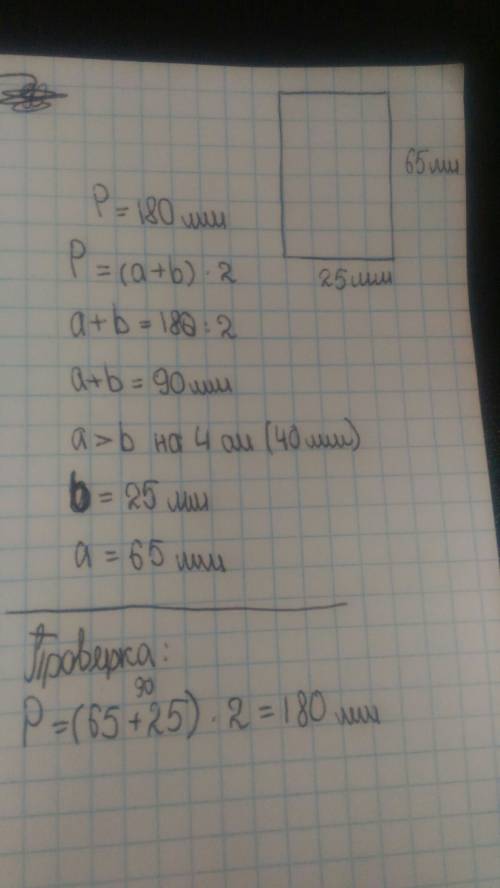 65 мм
P = 180 мм
25 мм
P = (a+b) · 2
a+b = 180 : 2
a+b = 90 мм
a > b на 4 см (40 мм)
b = 25 мм
a = 65 мм
Проверка:
90
P = (65 + 25) · 2 = 180 мм